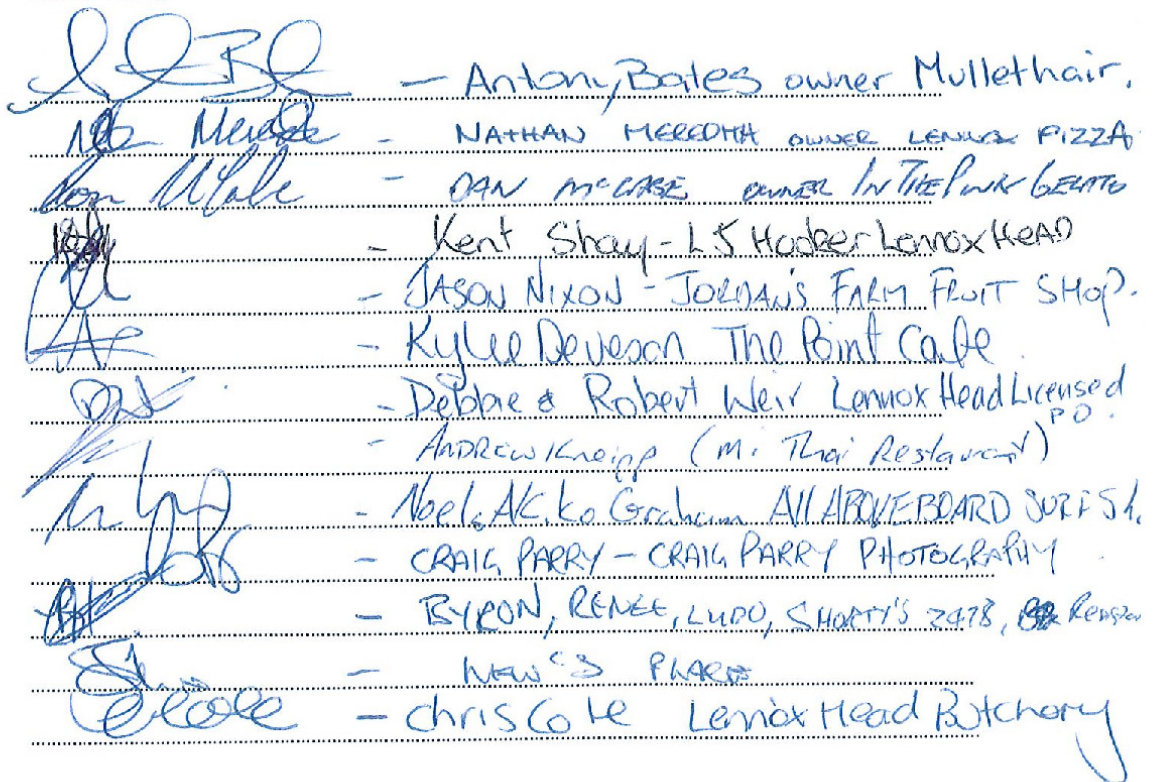 - Antony Bates owner Mullethair.
- NATHAN MEREDITH OWNER LENNOX PIZZA
- DAN McCABE OWNER IN THE PINK GELATO
- Kent Shay - LJ Hooker Lennox HEAD
- JASON NIXON - JORDAN'S FARM FRUIT SHOP.
- Kylee Deveson The Point Cafe
- Debbie & Robert Weir Lennox Head Licensed PO.
- ANDREW Kneipp (Mi Thai Restaurant)
- Noel, Akiko Graham All ABOVE BOARD SURF Sh.
- CRAIG PARRY - CRAIG PARRY PHOTOGRAPHY
- BYRON, RENEE, LUDO, SHORTY'S 2478,
- PLACE
Cole - Chris Cole Lennox Head Butchery